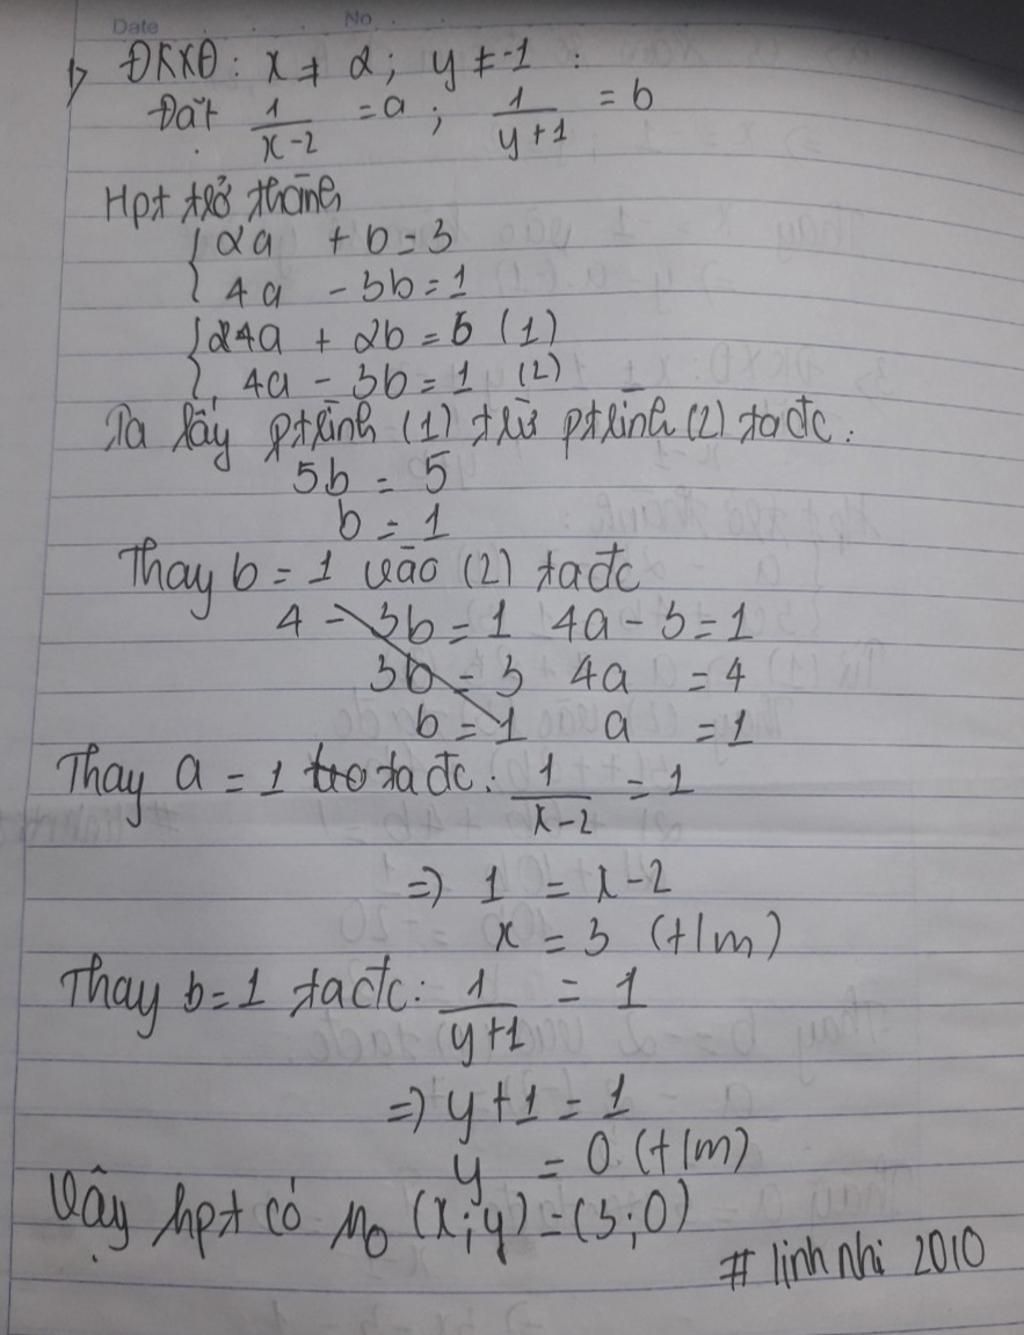 Date No
1) ĐKXĐ: x ≠ 2; y ≠ -1 :
Đặt 1/(x-2) = a ; 1/(y+1) = b
Hpt trở thành
{ 2a + b = 3
4a - 3b = 1
{ 4a + 2b = 6 (1)
4a - 3b = 1 (2)
Ta lấy ptrình (1) trừ ptrình (2) ta đc :
5b = 5
b = 1
Thay b = 1 vào (2) ta đc
4 - 3b = 1 4a - 3 = 1
3b = 3 4a = 4
b = 1 a = 1
Thay a = 1 ta đc : 1/(x-2) = 1
=> 1 = x - 2
x = 3 (t/m)
Thay b = 1 ta đc : 1/(y+1) = 1
=> y + 1 = 1
y = 0 (t/m)
Vậy hpt có no (x;y) = (3;0)
# linh nhi 2010